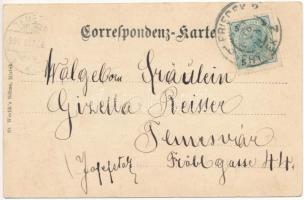 Correspondenz-Karte
Wolgeborn Fräulein
Gizella Reisser
Temesvár
(Josefstadt) Fröbl gasse 44.